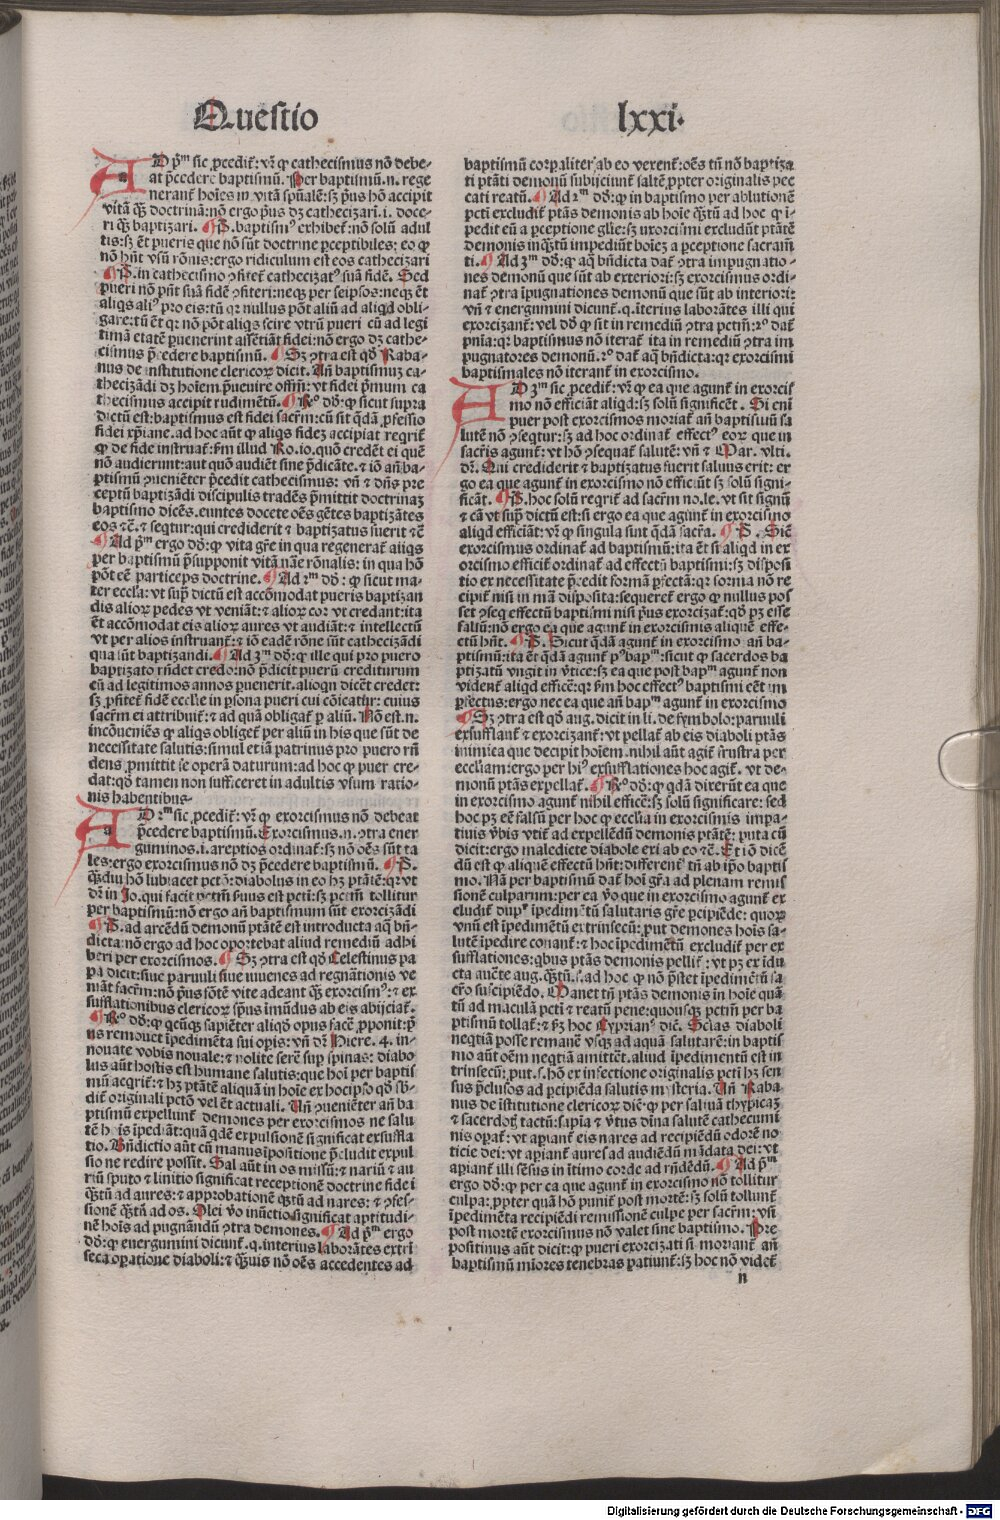 Questio lxxi.
AD p̄ᵐ sic ꝓcedit᷑: vr̄ ꝙ cathecismus nō debe-
at p̄cedere baptismū. Per baptismū .n. rege
nerant᷑ hoīes in vitā spūalē: sꝫ prius hō accipit
vitā qꝫ̄ doctrinā: nō ergo pͥus dꝫ cathecizari .i. doce-
ri qꝫ̄ baptizari. ¶ P̄. baptismꝰ exhibet᷑: nō solū adul
tis: sꝫ ēt pueris que nō sūt doctrine ꝑceptibiles: eo ꝙ
nō hn̄t vsū rōnis: ergo ridiculum est eos cathecizari
¶ P̄. in cathecismo ꝯfitet᷑ cathecizatꝰ suā fidē. Sed
pueri nō pn̄t suā fidē ꝯfiteri: neqꝫ per seipsos: neqꝫ ēt
aliqs aliꝰ pro eis: tū qr nullus pōt aliū ad aliqd obli-
gare: tū ēt qr nō pōt aliqs scire vtrū pueri cū ad legi
timā etatē puenerint assētiāt fidei: nō ergo dꝫ cathe-
cismus p̄cedere baptismū. ¶ Sꝫ ꝯtra est qd̓ Raba-
nus de institutione clericoꝝ dicit. An̄ baptismuꝫ ca-
thecizādi dꝫ hoīem p̄uenire offm̄: vt fidei p̄mum ca
thecismus accipit rudimētū. ¶ Rͦ dd̓: ꝙ sicut supra
dictū est: baptismus est fidei sacr̄m: cū sit qd̄ā ꝓfessio
fidei xp̄iane. ad hoc aūt ꝙ aliqs fideꝫ accipiat reqrit᷑
ꝙ de fide instruat᷑: ẜm illud Ro.io. quō credēt ei quē
nō audierunt: aut quō audiēt sine p̄dicāte. & iō an̄ ba-
ptismū ꝯueniēter p̄cedit cathecismus: vn̄ & dn̄s pre
ceptū baptizādi discipulis tradēs p̄mittit doctrinaꝫ
baptismo dicēs. euntes docete oēs gētes baptizātes
eos ⁊c̄. & seqtur: qui crediderit & baptizatus fuerit ⁊c̄
¶ Ad p̄ᵐ ergo dd̓: ꝙ vita gr̄e in qua regenerat᷑ aliqs
per baptismū p̄supponit vitā nāe rōnalis: in qua hō
pōt eē particeps doctrine. ¶ Ad 2ᵐ dd̓: ꝙ sicut ma-
ter eccl̓ia: vt sup̄ dictū est accōmodat pueris baptizan
dis alioꝝ pedes vt veniāt: & alioꝝ cor vt credant: ita
ēt accōmodat eis alioꝝ aures vt audiāt: & intellectū
vt per alios instruant᷑: & iō eadē rōne sūt cathecizādi
qua sūt baptizandi. ¶ Ad 3ᵐ dd̓: ꝙ ille qui pro puero
baptizato rn̄det credo: nō p̄dicit puerū crediturum
cū ad legitimos annos puenerit. alioqn dicēt credet:
sꝫ ꝓfitet᷑ fidē ecclie in ꝑsona pueri cui cōicatur: cuius
sacr̄m ei attribuit᷑: & ad quā obligat᷑ ꝑ aliū. Nō est .n.
incōueniēs ꝙ aliqs obliget᷑ per aliū in his que sūt de
necessitate salutis: simul et iā patrinus pro puero rn̄
dens ꝓmittit se operā daturum: ad hoc ꝙ puer cre-
dat: qd̓ tamen non sufficeret in adultis vsum ratio-
nis habentibus-
AD 2ᵐ sic ꝓcedit᷑: vr̄ ꝙ exorcismus nō debeat
p̄cedere baptismū. Exorcismus .n. ꝯtra ener
guminos .i. areptios ordinat᷑: sꝫ nō oēs sūt ta
les: ergo exorcismus nō dꝫ p̄cedere baptismū. ¶ P̄.
qꝫ̄diu hō subiacet pctō: diabolus in eo hꝫ ptātē: qr vt
dr̄ in Jo. qui facit pctm̄ suus est pcti: sꝫ pctm̄ tollitur
per baptismū: nō ergo an̄ baptismum sūt exorcizādi
¶ P̄. ad arcēdū demonū ptātē est introducta aq̄ bn̄-
dicta: nō ergo ad hoc oportebat aliud remediū adhi
beri per exorcismos. ¶ Sꝫ ꝯtra est qd̓ Celestinus pa
pa dicit: siue paruuli siue iuuenes ad regn̄ationis ve
niāt sacr̄m: nō pͥus fōtē vite adeant qꝫ̄ exorcismꝰ: & ex
sufflationibus clericoꝝ sp̄us imūdus ab eis abijciat᷑.
¶ Rͦ dd̓: ꝙ qcūqꝫ sapiēter aliqd̓ opus facē ꝓponit: p̄
us remouet ipedimēta sui opis: vn̄ dr̄ Hiere. 4. in-
nouate vobis nouale: & nolite serē sup spinas: diabo
lus aūt hostis est humane salutis: que hoi per baptis
mū acqrit᷑: & hꝫ ptātē aliquā in hoīe ex hocipso qd̓ sb̄-
dit᷑ originali pctō vel ēt actuali. Un̄ ꝯueniēter an̄ ba
ptismū expellunt᷑ demones per exorcismos ne salu
tē hoīs ipediāt: quā qdē expulsionē significat exsuffla
tio. Bn̄dictio aūt cū manus īpositione p̄cludit expul
sio ne redire possit. Sal aūt in os missū: & nariū & au
riū sputo & linitio significat receptionē doctrine fidei
qꝫ̄tū ad aures: & approbationē qꝫ̄tū ad nares: & ꝯfes-
sionē qꝫ̄tū ad os. Olei v̓o inūctio significat aptitudi-
nē hoīs ad pugnandū ꝯtra demones. ¶ Ad p̄ᵐ ergo
dd̓: ꝙ energumini dicunt᷑ .q. interius laborātes extrī
seca oꝑatione diaboli: & qꝫ̄uis nō oēs accedentes ad
baptismū corꝑaliter ab eo vexent᷑: oēs tn̄ nō baptiza
ti ptāti demonū subijciunt᷑ saltē ꝓpter originalis pec
cati reatū. ¶ Ad 2ᵐ dd̓: ꝙ in baptismo per ablutionē
pcti excludit᷑ ptās demonis ab hoīe qꝫ̄tū ad hoc ꝙ i-
pedit eū a ꝑceptione glīe: sꝫ exorcismi excludūt ptātē
demonis inqꝫ̄tū impediūt hoīeꝫ a ꝑceptione sacram̄
ti. ¶ Ad 3ᵐ dd̓: ꝙ aq̄ bn̄dicta dat᷑ ꝯtra impugnatio-
nes demonū que sūt ab exteriori: sꝫ exorcismus ordi-
nat᷑ ꝯtra īpugnationes demonū que sūt ab interiori:
vn̄ & energumini dicunt᷑ .q. iterius laborātes illi qui
exorcizant᷑: vel dd̓ ꝙ sic in remediū ꝯtra petm̄: 2ͦ dat᷑
pn̄ia: qr baptismus nō iterat᷑ ita in remediū ꝯtra im
pugnatores demonū. 2ͦ dat᷑ aq̄ bn̄dicta: qr exorcismi
baptismales nō iterant᷑ in exorcismo.
AD 3ᵐ sic ꝓcedit᷑: vr̄ ꝙ ea que agunt᷑ in exorcis
mo nō efficiāt aliqd: sꝫ solū significēt. Si eni
puer post exorcismos moriat᷑ an̄ baptismū sa
lutē nō ꝯseqtur: sꝫ ad hoc ordinat᷑ effectꝰ eoꝝ que in
sacr̄is agunt᷑: vt hō ꝯsequat᷑ salutē: vn̄ & Mar. vlti.
dr̄. Qui crediderit & baptizatus fuerit saluus erit: er
go ea que agunt᷑ in exorcismo nō efficiūt sꝫ solū signi-
ficāt. ¶ P̄. hoc solū reqrit᷑ ad sacr̄m no.le. vt sit signū
& cā vt sup̄ dictū est: si ergo ea que agunt᷑ in exorcismo
aliqd efficiāt: vr̄ ꝙ singula sint qd̄ā sacr̄a. ¶ P̄. Sic̄
exorcismus ordinat᷑ ad baptismū: ita ēt si aliqd in ex
orcismo efficit᷑ ordinat᷑ ad effectū baptismi: sꝫ disposi
tio ex necessitate p̄cedit formā ꝑfectā: qr forma nō re
cipit᷑ nisi in mā disposita: sequeret᷑ ergo ꝙ nullus pos
set ꝯseq effectū baptismi nisi pͥus exorcizat᷑: qd̓ pꝫ esse
falsū: nō ergo ea que agunt᷑ in exorcismis aliquē effe-
ctū hn̄t. ¶ P̄. Sicut qd̄ā agunt᷑ in exorcismo an̄ ba-
ptismū: ita ēt qd̄ā agunt᷑ pꝰ bapᵐ: sicut ꝙ sacerdos ba
ptizatū vngit in v̓tice: sꝫ ea que post bapᵐ agunt᷑ non
vident᷑ aliqd efficē: qr ẜm hoc effectꝰ baptismi eēt im
ꝑfectus: ergo nec ea que an̄ bapᵐ agunt᷑ in exorcismo
¶ Sꝫ ꝯtra est qd̓ aug. dicit in li. de symbolo: paruuli
exsufflant᷑ & exorcizant᷑: vt pellat᷑ ab eis diaboli ptās
inimica que decipit hoīem. nihil aūt agit᷑ frustra per
eccl̓iam: ergo per hiꝰ exsufflationes hoc agit᷑. vt de-
monū ptās expellat᷑. ¶ Rͦ dd̓: ꝙ qd̄ā dixerūt ea que
in exorcismo agunt᷑ nihil efficē: sꝫ solū significare: sed
hoc pꝫ eē falsū per hoc ꝙ eccl̓ia in exorcismis impa-
tiuis v̓bis vtit᷑ ad expellēdū demonis ptātē: puta cū
dicit: ergo maledicte diabole exi ab eo ⁊c̄. Et iō dicē
dū est ꝙ aliquē effectū hn̄t: different᷑ tn̄ ab ip̄o baptis
mo. Nā per baptismū dat᷑ hoi gr̄a ad plenam remis
sionē culparum: per ea v̓o que in exorcismo agunt᷑ ex
cludit᷑ dupꝉ ipedimētū salutaris gr̄e ꝑcipiēde: quoꝝ
vnū est īpedimētū extrinsecū: ꝓut demones hoīs sa-
lutē īpedire conant᷑: & hoc īpedimētū excludit᷑ per ex
sufflationes: qbus ptās demonis pellit᷑: vt pꝫ ex idu
cta aucte aug. qꝫ̄tū .s. ad hoc ꝙ nō p̄stet īpedimētū sa
cr̄o suscipiēdo. Manet tn̄ ptās demonis in hoīe quā
tū ad maculā pcti & reatū pene: quousqꝫ pctm̄ per ba
ptismū tollat᷑: & ẜꝫ hoc Cyprianꝰ dic̄. Scias diaboli
neqtiā posse remanē vsqꝫ ad aquā salutarē: in baptis
mo aūt oēm neqtiā amittēt. aliud īpedimētū est in
trinsecū: ꝓut .s. hō ex infectione originalis pcti hꝫ sen
sus p̄clusos ad ꝑcipiēda salutis mysteria. Un̄ Raba
nus de īstitutione clericoꝝ dic̄: ꝙ per saliuā thypicaꝫ
& sacerdotꝭ tactū: sapīa & v̓tus diīna salutē cathecumi
nis oꝑat᷑: vt aꝑiant᷑ eis nares ad recipiēdū odorē no
ticie dei: vt aꝑiant᷑ aures ad audiēdū mādata dei: vt
aꝑiant᷑ illi sēsus in ītimo corde ad rn̄dēdū. ¶ Ad p̄ᵐ
ergo dd̓: ꝙ per ea que agunt᷑ in exorcismo nō tollitur
culpa: ꝓpter quā hō punit᷑ post mortē: sꝫ solū tollunt᷑
īpedimēta recipiēdi remissionē culpe per sacr̄m: vn̄
post mortē exorcismus nō valet sine baptismo. Pre
positinus aūt dicit: ꝙ pueri exorcizati si moriant᷑ an̄
baptismū miores tenebras patiunt᷑: sꝫ hoc nō videt᷑
n
Digitalisierung gefördert durch die Deutsche Forschungsgemeinschaft - DFG